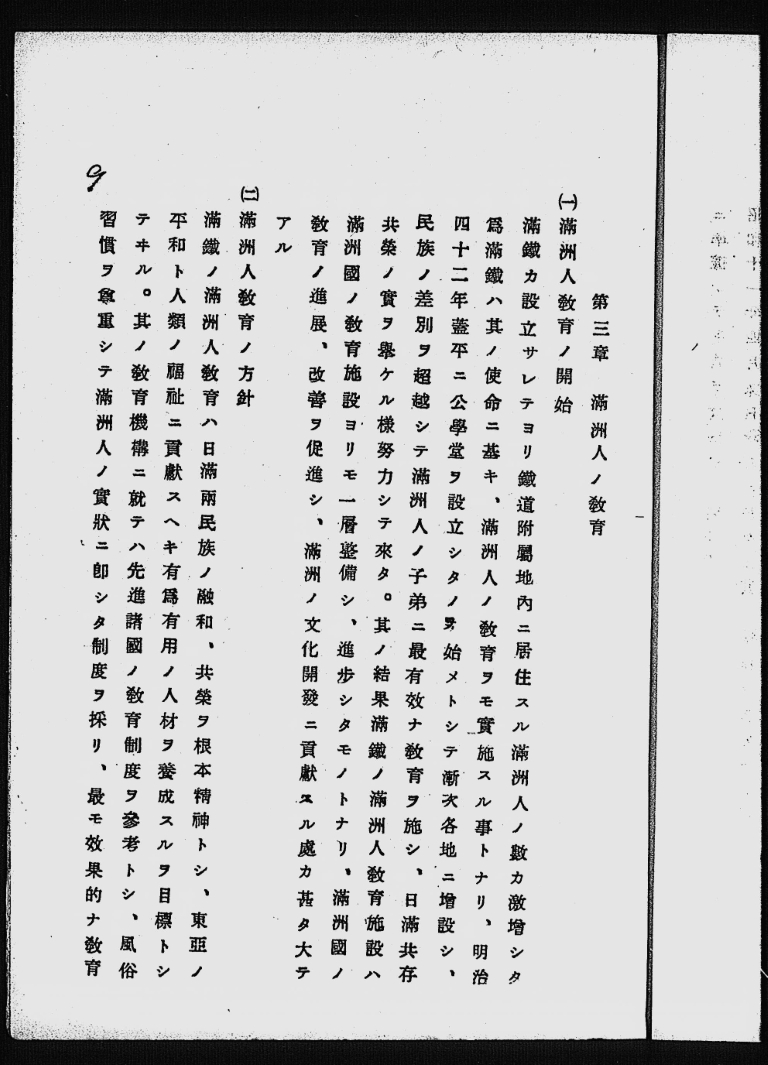 第三章　滿洲人ノ敎育
㈠滿洲人敎育ノ開始
滿鐵カ設立サレテヨリ鐵道附屬地內ニ居住スル滿洲人ノ數カ激增シタ
爲滿鐵ハ其ノ使命ニ基キ、滿洲人ノ敎育ヲモ實施スル事トナリ、明治
四十二年蓋平ニ公學堂ヲ設立シタノヲ始メトシテ漸次各地ニ增設シ、
民族ノ差別ヲ超越シテ滿洲人ノ子弟ニ最有效ナ敎育ヲ施シ、日滿共存
共榮ノ實ヲ擧ケル樣努力シテ來タ。其ノ結果滿鐵ノ滿洲人敎育施設ハ
滿洲國ノ敎育施設ヨリモ一層整備シ、進步シタモノトナリ、滿洲國ノ
敎育ノ進展、改善ヲ促進シ、滿洲ノ文化開發ニ貢獻スル處カ甚タ大テ
アル
㈡滿洲人敎育ノ方針
滿鐵ノ滿洲人敎育ハ日滿兩民族ノ融和、共榮ヲ根本精神トシ、東亞ノ
平和ト人類ノ福祉ニ貢獻スヘキ有爲有用ノ人材ヲ養成スルヲ目標トシ
テヰル。其ノ敎育機構ニ就テハ先進諸國ノ敎育制度ヲ參考トシ、風俗
習慣ヲ尊重シテ滿洲人ノ實狀ニ卽シタ制度ヲ採リ、最モ效果的ナ敎育
9